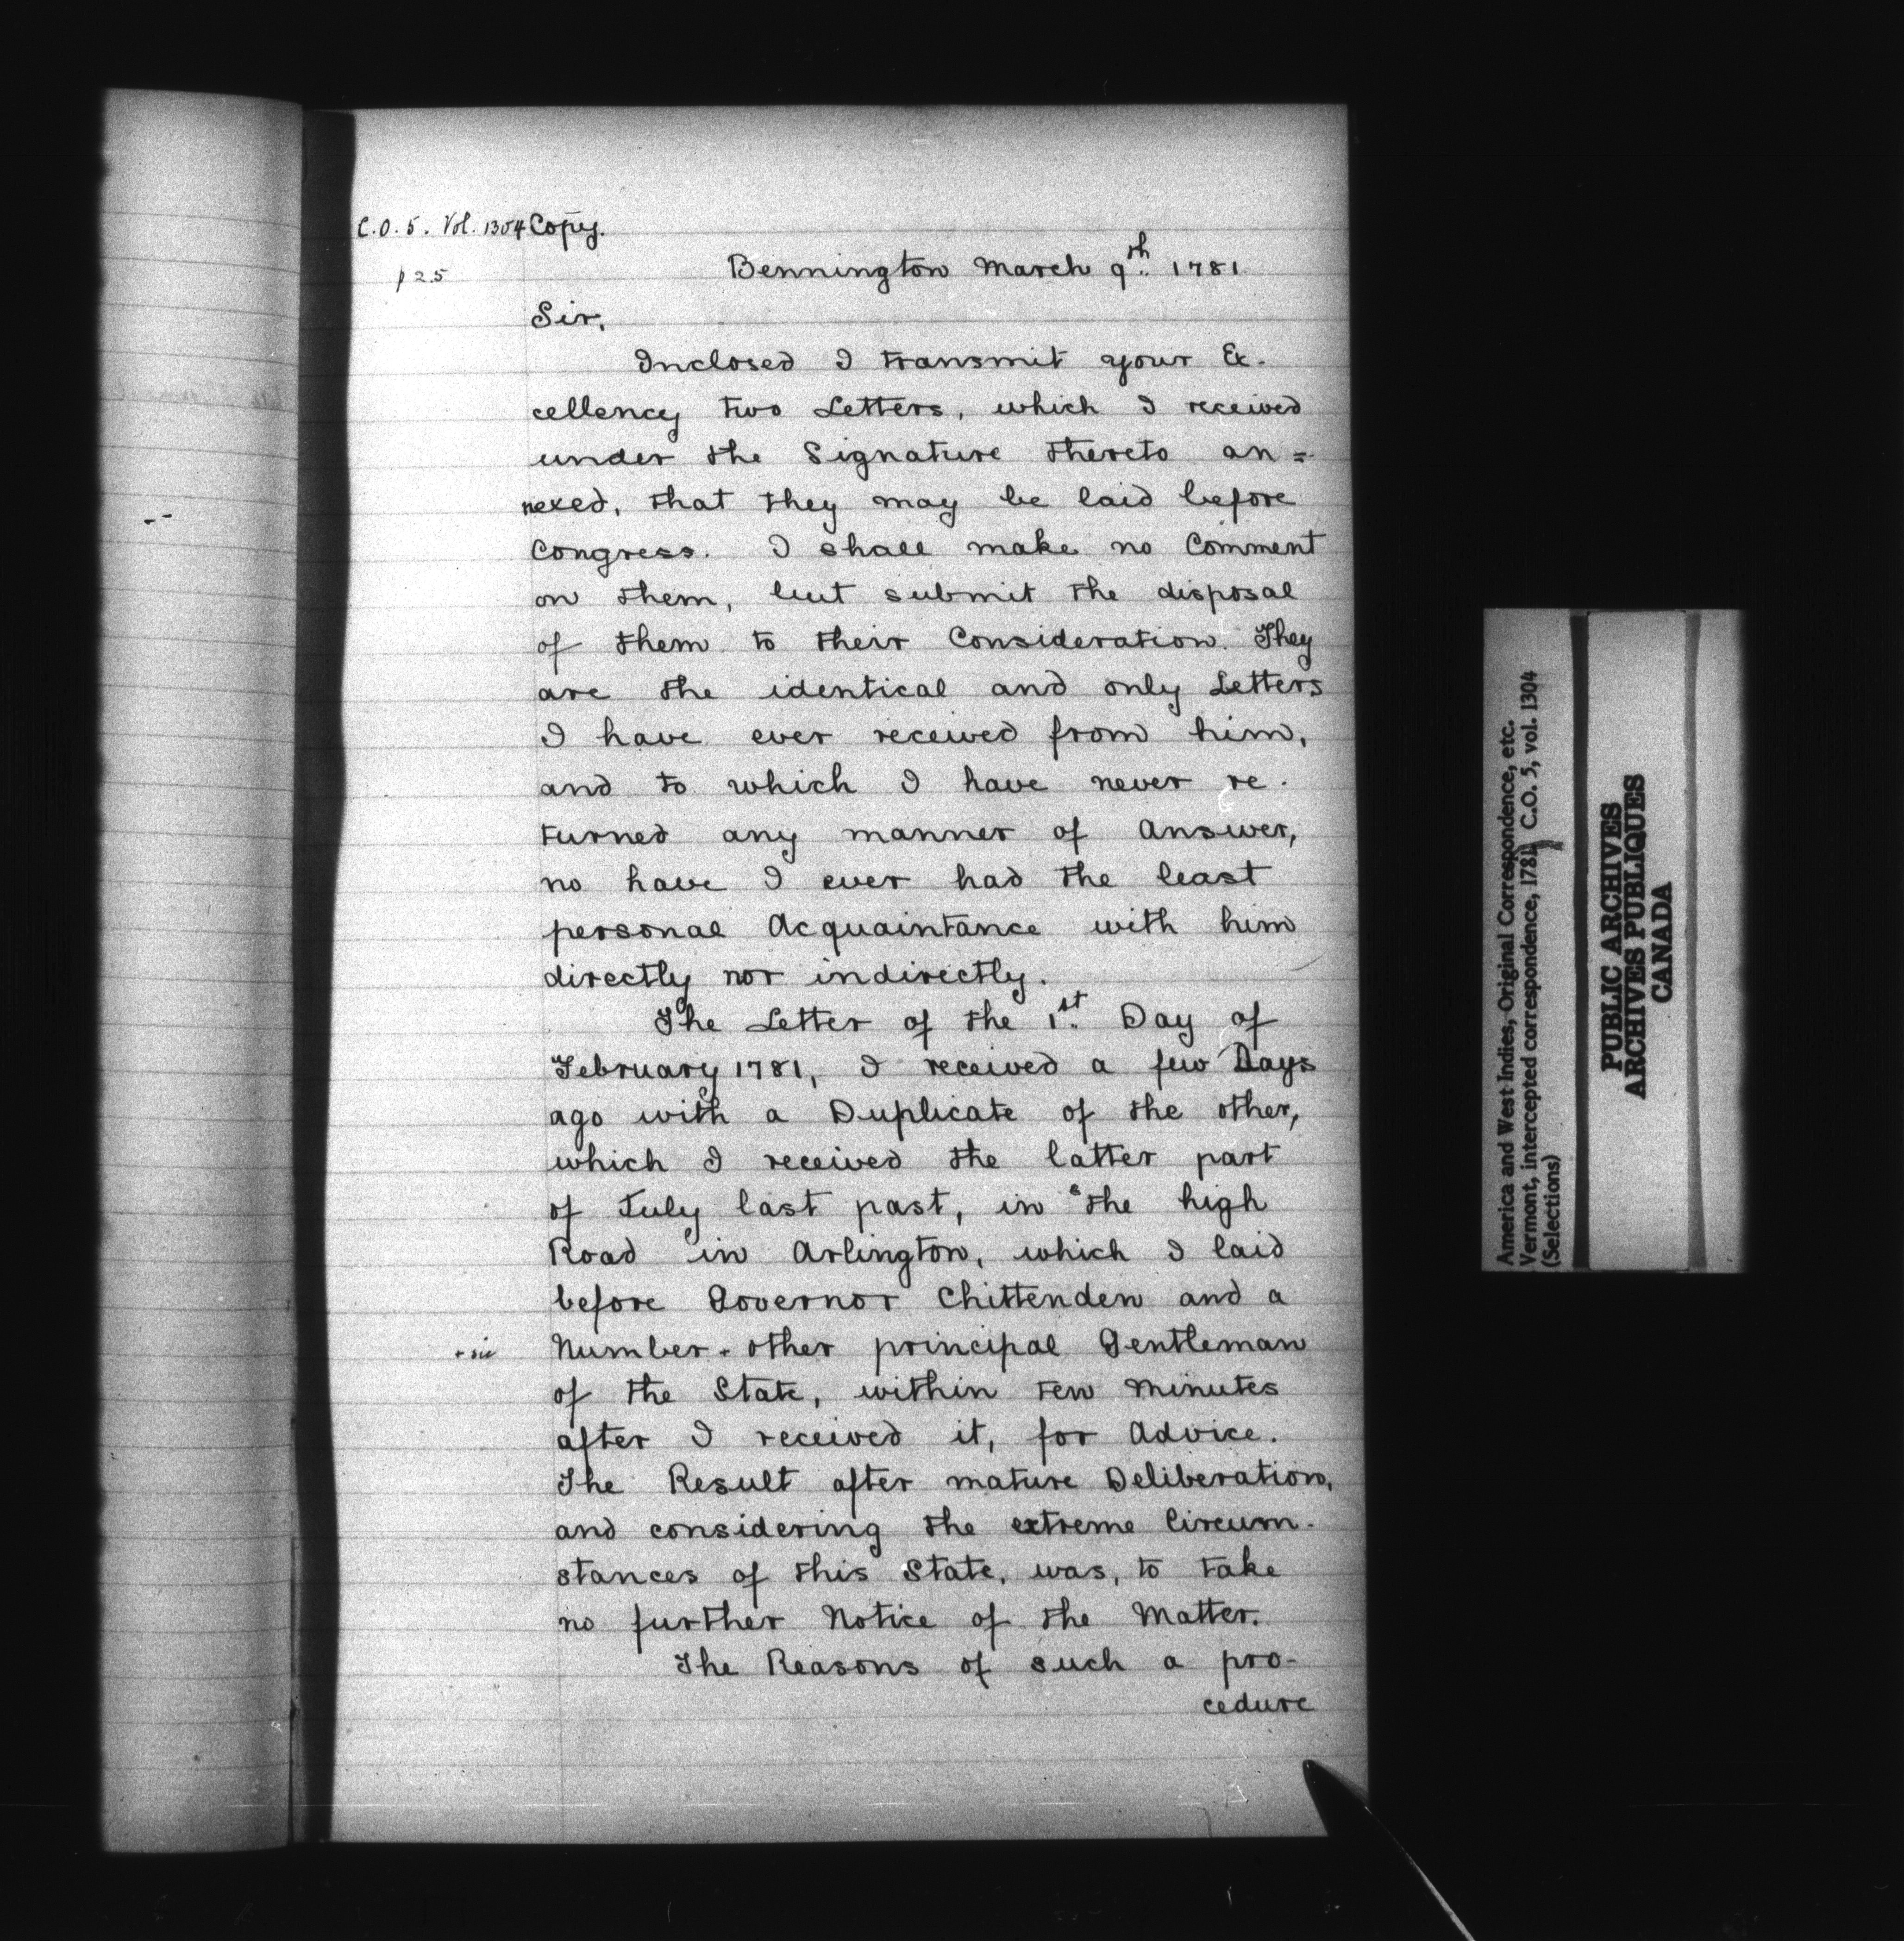 C.O. 5. Vol. 1304 Copy.
p 25
Bennington March 9th. 1781
Sir,
Inclosed I transmit your Ex-
cellency two Letters, which I received
under the Signature thereto an=
nexed, that they may be laid before
Congress. I shall make no Comment
on them, but submit the disposal
of them to their Consideration. They
are the identical and only Letters
I have ever received from him,
and to which I have never re-
turned any manner of Answer,
no have I ever had the least
personal Acquaintance with him
directly nor indirectly.
The Letter of the 1st. Day of
February 1781, I received a few Days
ago with a Duplicate of the other,
which I received the latter part
of July last past, in the high
Road in Arlington, which I laid
before Governor Chittenden and a
+ sic
Number + other principal Gentleman
of the State, within ten Minutes
after I received it, for Advice.
The Result after mature Deliberation,
and considering the extreme Circum-
stances of this State, was, to take
no further Notice of the Matter.
The Reasons of such a pro-
cedure
America and West Indies, Original Correspondence, etc.
Vermont, intercepted correspondence, 1781 C.O. 5, vol. 1304
(Selections)
PUBLIC ARCHIVES
ARCHIVES PUBLIQUES
CANADA